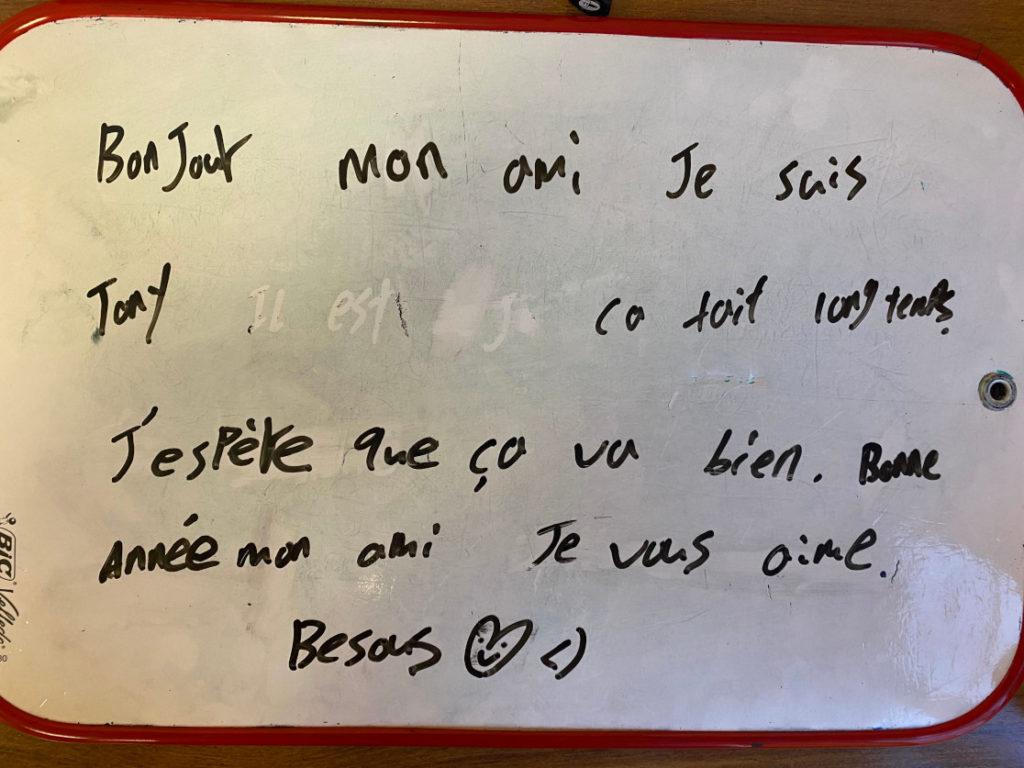 BonJour mon ami Je suis
Tony Il est ça fait longtemps
J'espère que ça va bien. Bonne
Année mon ami Je vous aime.
Besous
BIC Velleda